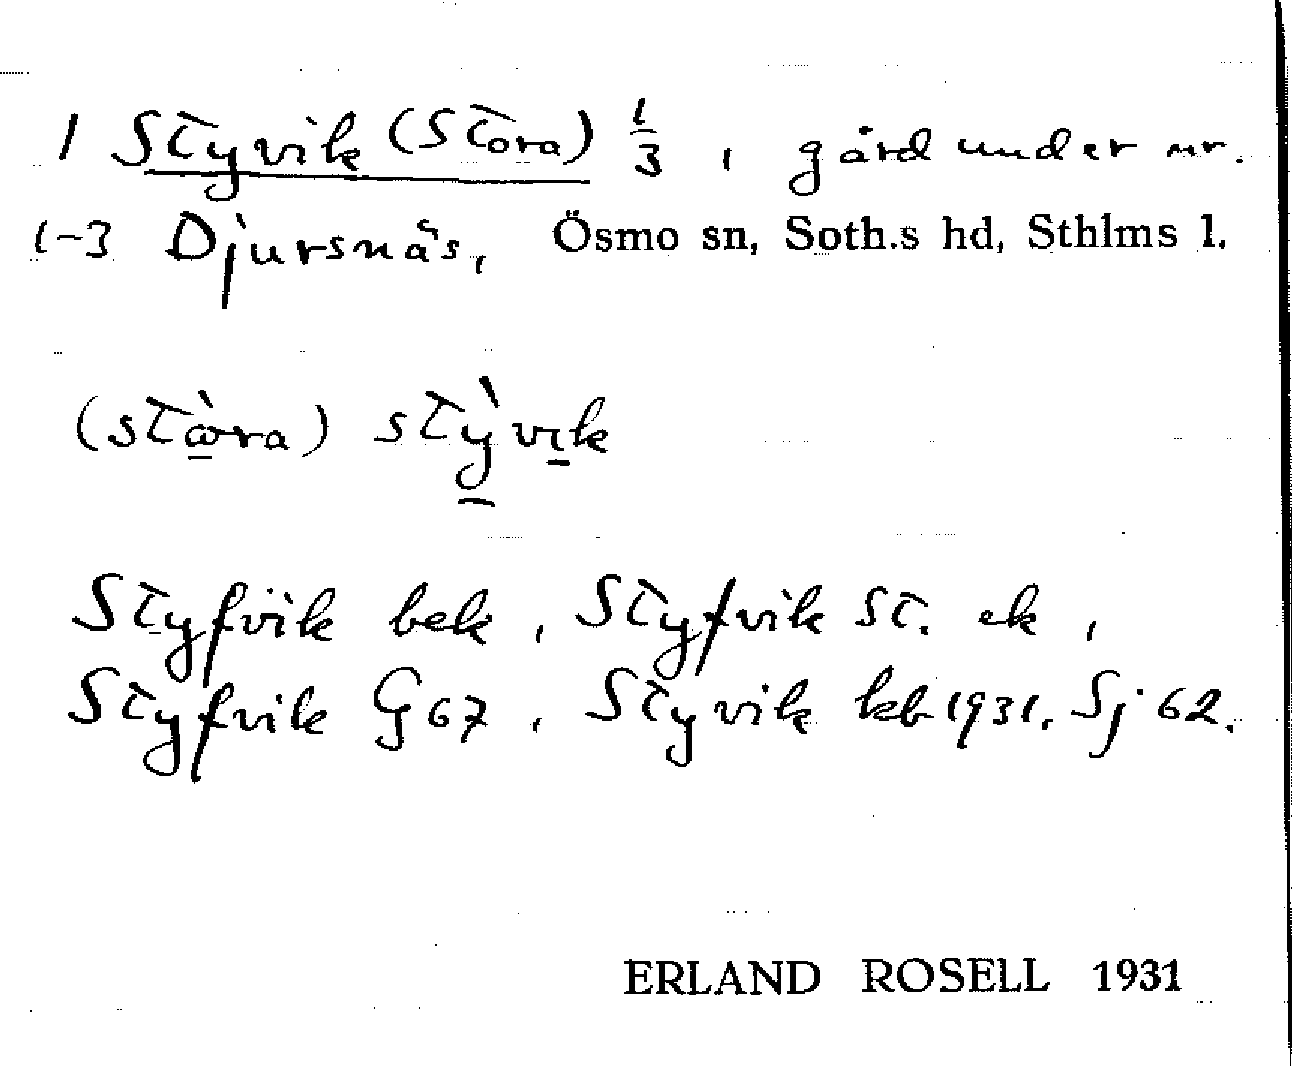 1 Styvik (Stora) 1/3, gård under nr.
1-3 Djursnäs, Ösmo sn, Soth.s hd, Sthlms l.
(stɷ̀ra) stỳvik
Styfvik bek, Styfvik St. ek,
Styfvik G 67, Styvik kb 1931. Sj 62.
ERLAND ROSELL 1931